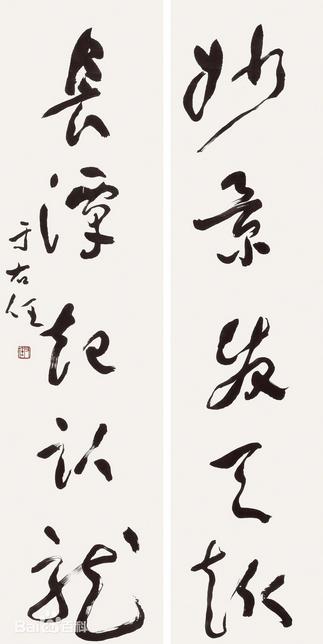 妙景發天趣
長潭起臥龍
于右任
Baidu百科